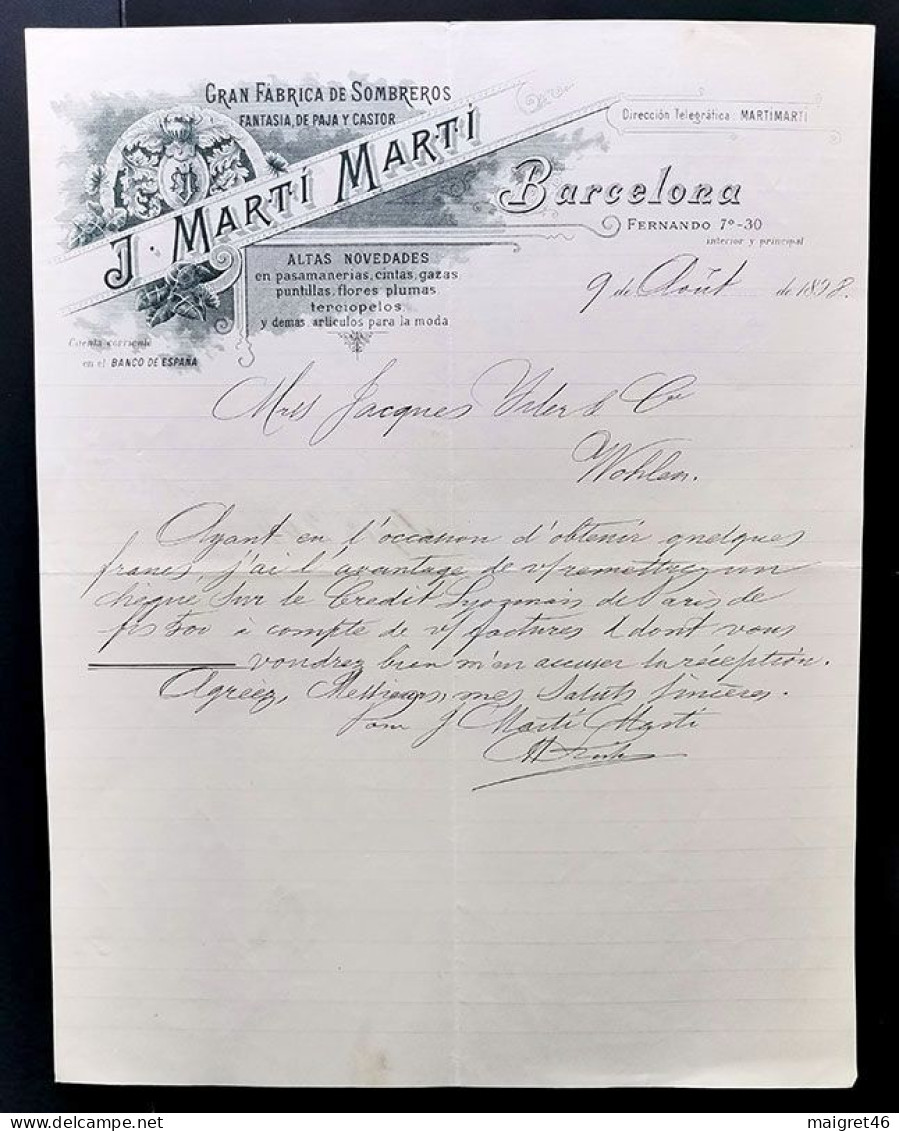 GRAN FÁBRICA DE SOMBREROS
FANTASIA, DE PAJA Y CASTOR
J. MARTÍ MARTÍ
Dirección Telegráfica: MARTÍMARTÍ
Barcelona
FERNANDO 7º-30
interior y principal
ALTAS NOVEDADES
en pasamanerias, cintas, gazas
puntillas, flores plumas
terciopelos
y demas articulos para la moda
Cuenta corriente
en el BANCO DE ESPAÑA
9 de Août de 1898.
Jacques Isler & Cie
Wohlen.
Ayant eu l'occasion d'obtenir quelques
francs, j'ai l'avantage de v/ remettre un
chèque sur le Credit Lyonnais de Paris de
fcs 500 à compte de v/ factures & dont vous
voudrez bien m'en accuser la réception.
Agréez, Messieurs, mes Saluts sincères.
J Marti Marti
maigret46